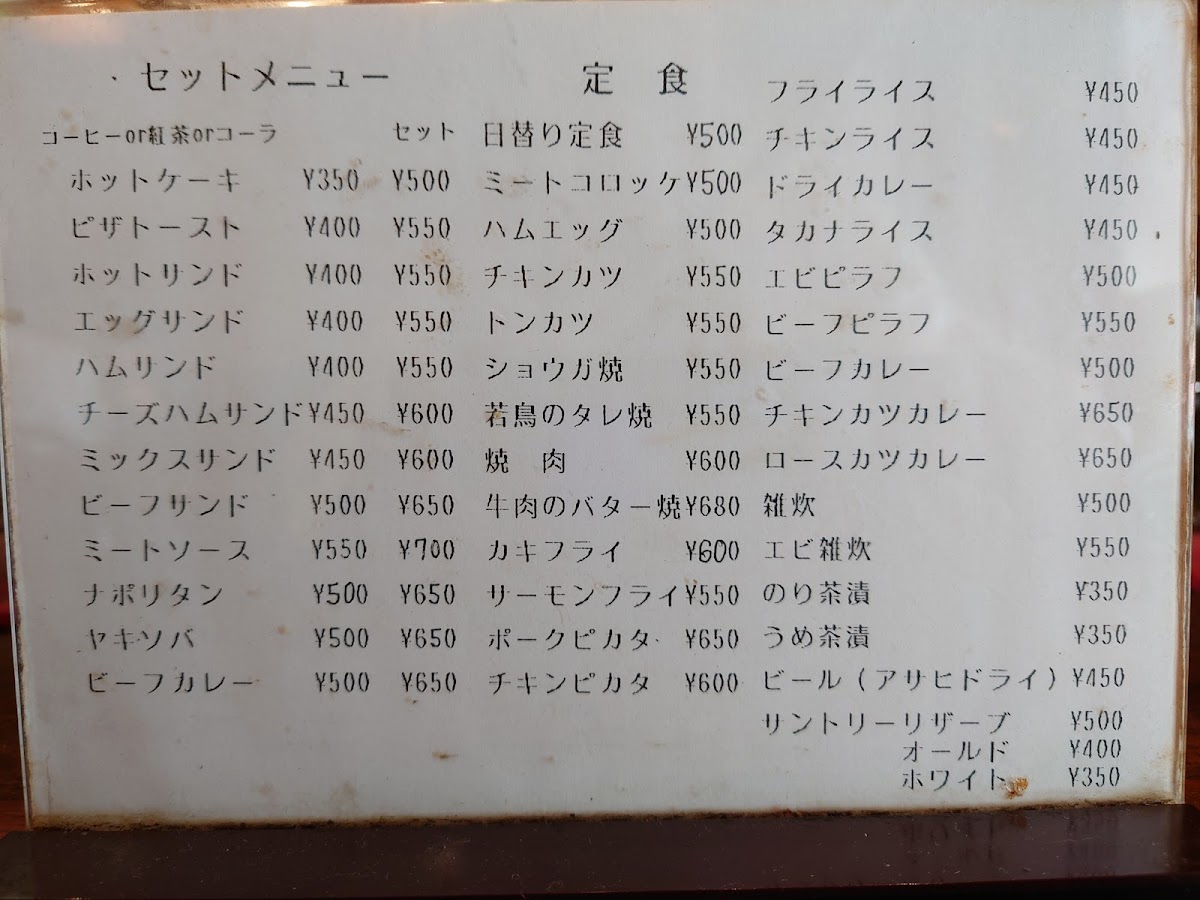 セットメニュー
コーヒーor紅茶orコーラ セット
ホットケーキ ¥350 ¥500
ピザトースト ¥400 ¥550
ホットサンド ¥400 ¥550
エッグサンド ¥400 ¥550
ハムサンド ¥400 ¥550
チーズハムサンド ¥450 ¥600
ミックスサンド ¥450 ¥600
ビーフサンド ¥500 ¥650
ミートソース ¥550 ¥700
ナポリタン ¥500 ¥650
ヤキソバ ¥500 ¥650
ビーフカレー ¥500 ¥650
定 食
日替り定食 ¥500
ミートコロッケ ¥500
ハムエッグ ¥500
チキンカツ ¥550
トンカツ ¥550
ショウガ焼 ¥550
若鳥のタレ焼 ¥550
焼 肉 ¥600
牛肉のバター焼 ¥680
カキフライ ¥600
サーモンフライ ¥550
ポークピカタ ¥650
チキンピカタ ¥600
フライライス ¥450
チキンライス ¥450
ドライカレー ¥450
タカナライス ¥450
エビピラフ ¥500
ビーフピラフ ¥550
ビーフカレー ¥500
チキンカツカレー ¥650
ロースカツカレー ¥650
雑炊 ¥500
エビ雑炊 ¥550
のり茶漬 ¥350
うめ茶漬 ¥350
ビール(アサヒドライ) ¥450
サントリーリザーブ ¥500
オールド ¥400
ホワイト ¥350